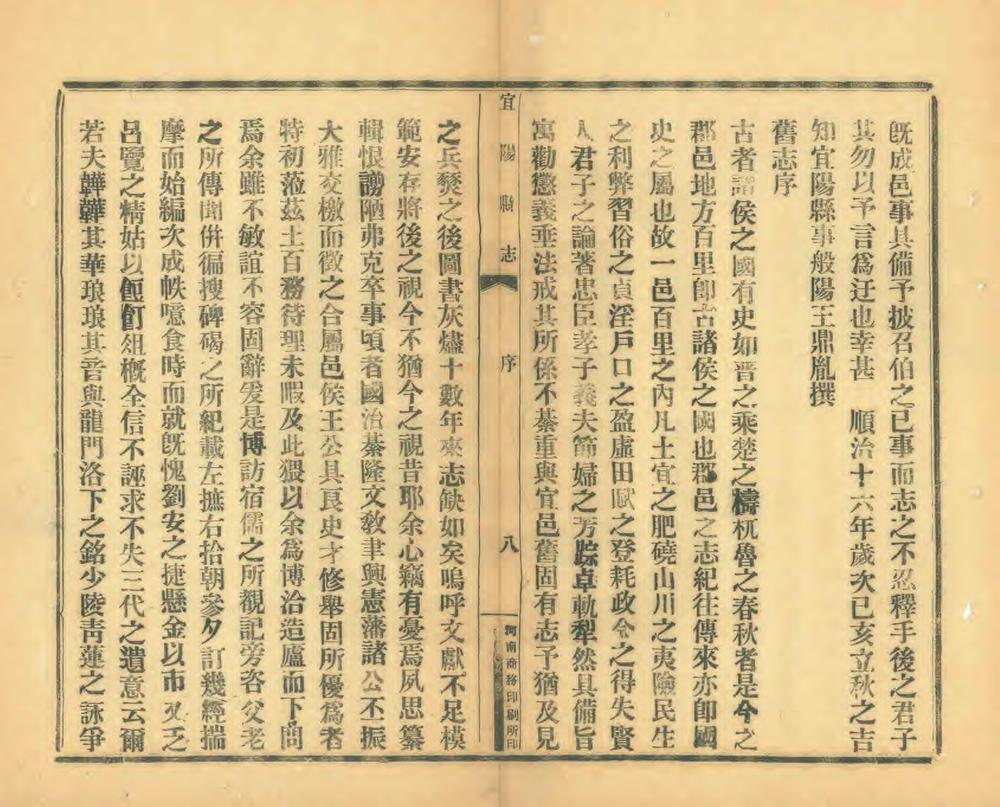 旣成邑事具備予披召伯之已事而志之不忍釋手後之君子
其勿以予言爲迂也幸甚　順治十六年歲次己亥立秋之吉
知宜陽縣事般陽王鼎胤撰
舊志序
古者諸侯之國有史如晋之乘楚之檮杌魯之春秋者是今之
郡邑地方百里卽古諸侯之國也郡邑之志紀往傳來亦卽國
史之屬也故一邑百里之內凡土宜之肥磽山川之夷險民生
之利弊習俗之貞淫戶口之盈虛田賦之登耗政令之得失賢
人君子之論著忠臣孝子義夫節婦之芳踪卓軌犁然具備旨
寓勸懲義垂法戒其所係不綦重與宜邑舊固有志予猶及見
宜陽縣志　序　八　河南商務印刷所印
之兵燹之後圖書灰燼十數年來志缺如矣嗚呼文獻不足模
範安存將後之視今不猶今之視昔耶余心竊有憂焉夙思纂
輯恨謭陋弗克卒事頃者國治綦隆文敎聿興憲藩諸公丕振
大雅交檄而徵之合屬邑侯王公具良史才修舉固所優爲者
特初蒞茲土百務待理未暇及此猥以余爲博洽造廬而下問
焉余雖不敏誼不容固辭爰是博訪宿儒之所覩記旁咨父老
之所傳聞併徧搜碑碣之所紀載左摭右拾朝參夕訂幾經揣
摩而始編次成帙噫食時而就旣愧劉安之捷懸金以市又乏
呂覽之精姑以餖飣俎概全信不誣求不失三代之遺意云爾
若夫韡韡其華琅琅其音與龍門洛下之銘少陵靑蓮之詠爭